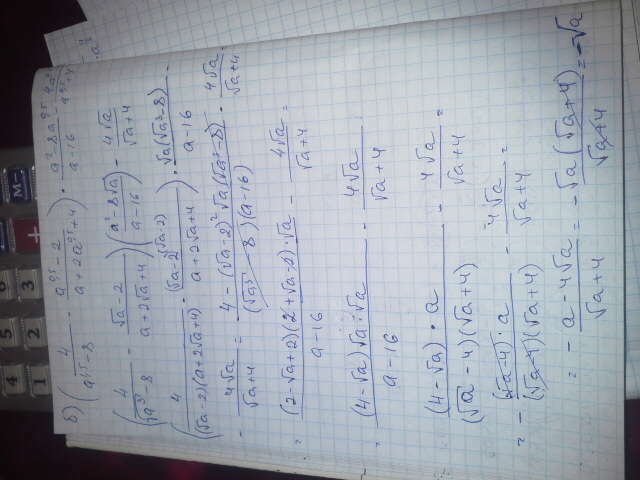 4 5
1 2 3
+ M-
б) (4/(a^1,5 - 8) - (a^0,5 - 2)/(a + 2a^0,5 + 4)) · (a² - 8a^0,5)/(a - 16) - 4a^0,5/(a^0,5 + 4)
(4/(√a³ - 8) - (√a - 2)/(a + 2√a + 4)) ((a² - 8√a)/(a - 16)) - 4√a/(√a + 4)
(4/((√a - 2)(a + 2√a + 4)) - (√a - 2)(√a - 2)/(a + 2√a + 4)) · √a(√a³ - 8)/(a - 16) -
- 4√a/(√a + 4) = (4 - (√a - 2)² √a(√a³ - 8))/((√a³ - 8)(a - 16)) - 4√a/(√a + 4)
= (2 - √a + 2)(2 + √a - 2) · √a/(a - 16) - 4√a/(√a + 4) =
= (4 - √a)√a · √a/(a - 16) - 4√a/(√a + 4)
(4 - √a) · a/((√a - 4)(√a + 4)) - 4√a/(√a + 4) =
= - (√a - 4) · a/((√a - 4)(√a + 4)) - 4√a/(√a + 4) =
= - (a - 4√a)/(√a + 4) = - √a(√a + 4)/(√a + 4) = -√a